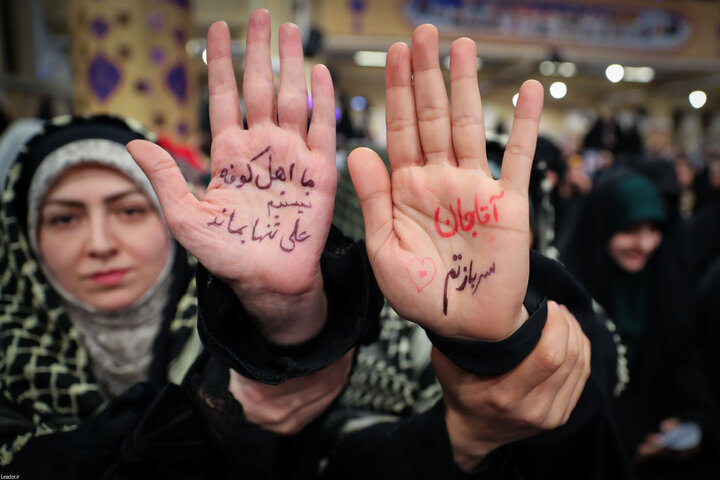 ما اهل کوفه
نیستیم
علی تنها بماند
آقاجان
سربازتم
Leader.ir